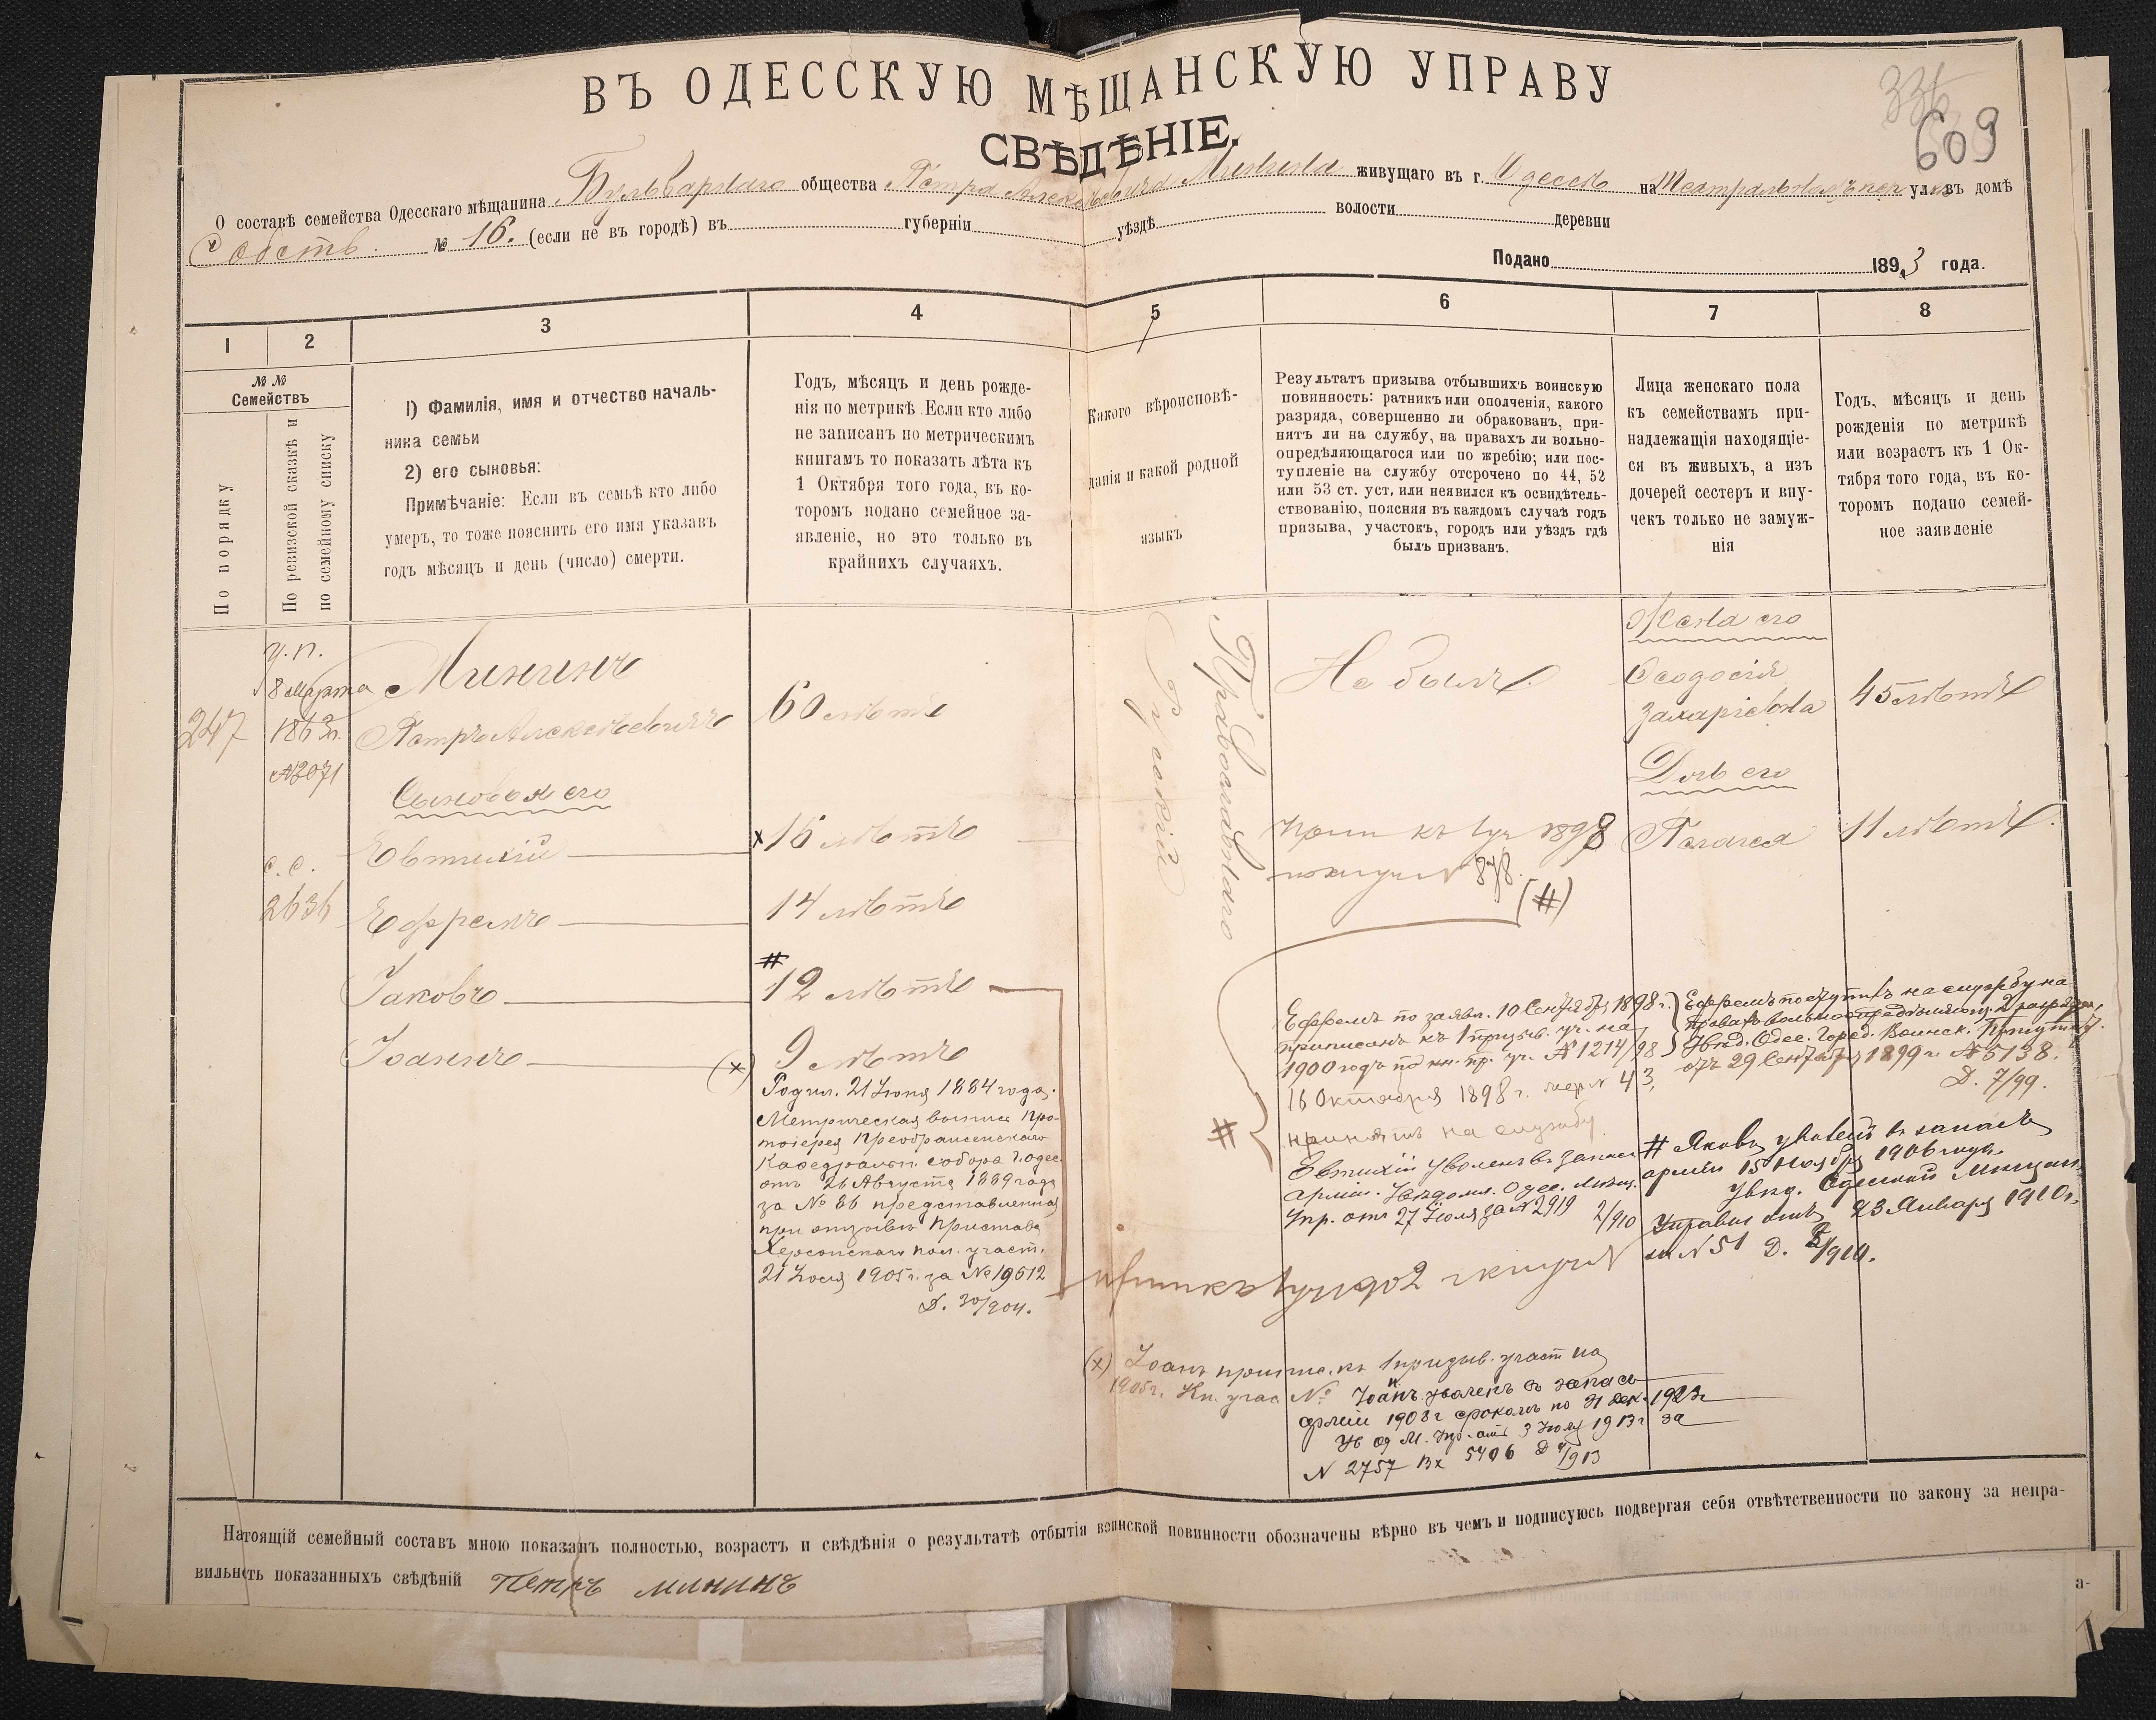 336
609
ВЪ ОДЕССКУЮ МѢЩАНСКУЮ УПРАВУ
СВѢДѢНІЕ.
О составѣ семейства Одесскаго мѣщанина Бульварнаго общества Петра Алексѣевича Минина живущаго въ г. Одессѣ на улвъ домѣ
Собств. № 16. (если не въ городѣ) въ губерніи уѣздѣ волости деревни
Подано 1893 года.
1 2 3 4 5 6 7 8
№ №
Семействъ
По порядку
По ревизской сказкѣ и
по семейному списку
1) Фамилія, имя и отчество началь-
ника семьи
2) его сыновья:
Примѣчаніе: Если въ семьѣ кто либо
умеръ, то тоже пояснить его имя указавъ
годъ мѣсяцъ и день (число) смерти.
Годъ, мѣсяцъ и день рожде-
нія по метрикѣ. Если кто либо
не записанъ по метрическимъ
книгамъ то показать лѣта къ
1 Октября того года, въ ко-
торомъ подано семейное за-
явленіе, но это только въ
крайнихъ случаяхъ.
Какого вѣроисповѣ-
данія и какой родной
языкъ
Результатъ призыва отбывшихъ воинскую
повинность: ратникъ или ополченія, какого
разряда, совершенно ли обракованъ, при-
нятъ ли на службу, на правахъ ли вольно-
опредѣляющагося или по жребію; или пос-
тупленіе на службу отсрочено по 44, 52
или 53 ст. уст, или неявился къ освидѣтель-
ствованію, поясняя въ каждомъ случаѣ годъ
призыва, участокъ, городъ или уѣздъ гдѣ
былъ призванъ.
Лица женскаго пола
къ семействамъ при-
надлежащія находящіе-
ся въ живыхъ, а изъ
дочерей сестеръ и вну-
чекъ только не замуж-
нія
Годъ, мѣсяцъ и день
рожденія по метрикѣ
или возрастъ къ 1 Ок-
тября того года, въ ко-
торомъ подано семей-
ное заявленіе
247
8 Марта
№2071
с. с.
2636
Мининъ
Петръ Алексѣевичъ
Сыновья его
Евтихій
Ефремъ
Іаковъ
Іоаннъ
60 лѣтъ
х 16 лѣтъ
14 лѣтъ
# 12 лѣтъ
(х) 9 лѣтъ
Родил. 21 Іюня 1884 года.
Метрическая выпись Про-
тоіерея Преображенскаго
Каѳедральн. собора г. Одес.
отъ 26 Августа 1889 года
за № 86 представлена
при отзывѣ Пристава
Херсонскаго пол. участ.
21 Іюля 1905 г. за № 19612
Русскій
Православнаго
Не былъ
1898
№ 878
(#)
Ефремъ по заявл. 10 Сентября 1898 г.
приписанъ къ 1 призыв. уч. на
1900 годъ № 1214/98
16 Октября 1898 г. 43,
принятъ на службу
# Евтихій уволенъ въ запасъ
арміи. Увѣдомл. Одес. Мѣщ.
Упр. отъ 27 Іюля за № 2919 2/910
Жена его
Ѳеодосія
Захаріевна
Дочь его
Пелагея
45 лѣтъ
11 лѣтъ
Ефремъ поступилъ на службу на
Увѣд. Одес. Город. Воинск. Присут.
отъ 29 Сентября 1899 г. № 5138.
Д. 7/99.
# Яковъ уволенъ въ запасъ
арміи 15 Ноября 1906 года.
Увѣд. Одесской Мѣщан.
Управы отъ 23 Января 1910 г.
за № 51 Д. 2/910.
(х) Іоаннъ припис. къ 1 призыв. участ на
1905 г. Кн. учас №
Іоаннъ уволенъ въ запасъ
арміи 1908 г срокомъ по 31 Дек. 1923 г
Ув Од М. Упр. отъ 3 Іюля 1913 г за
N 2757 Вх 5406 Д 4/913
Натоящій семейный составъ мною показанъ полностью, возрастъ и свѣдѣнія о результатѣ отбытія воинской повинности обозначены вѣрно въ чемъ и подписуюсь подвергая себя отвѣтственности по закону за непра-
вильнсть показанныхъ свѣдѣній Петръ Мининъ